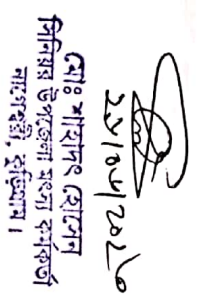 ২১/০৫/২০২৬
মোঃ শাহাদৎ হোসেন
সিনিয়র উপজেলা মৎস্য কর্মকর্তা
নাগেশ্বরী, কুড়িগ্রাম।